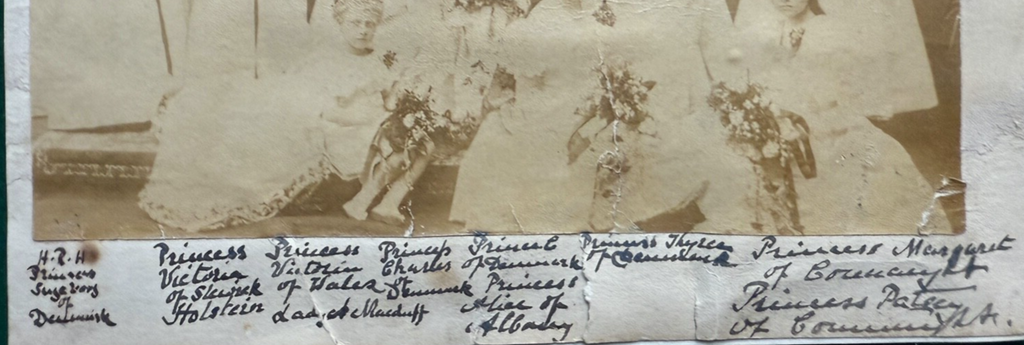 H.R.H
Princess
Ingeborg
of
Denmark
Princess
Victoria
of Slesvick
Holstein
Princess
Victoria
of Wales
Lady A Macduff
Princess
Charles
Denmark
Prince C
of Denmark
Princess
Alice of
Albany
Princess Thyra
of Denmark
Princess Margaret
of Connaught
Princess Patsy
of Connaught.